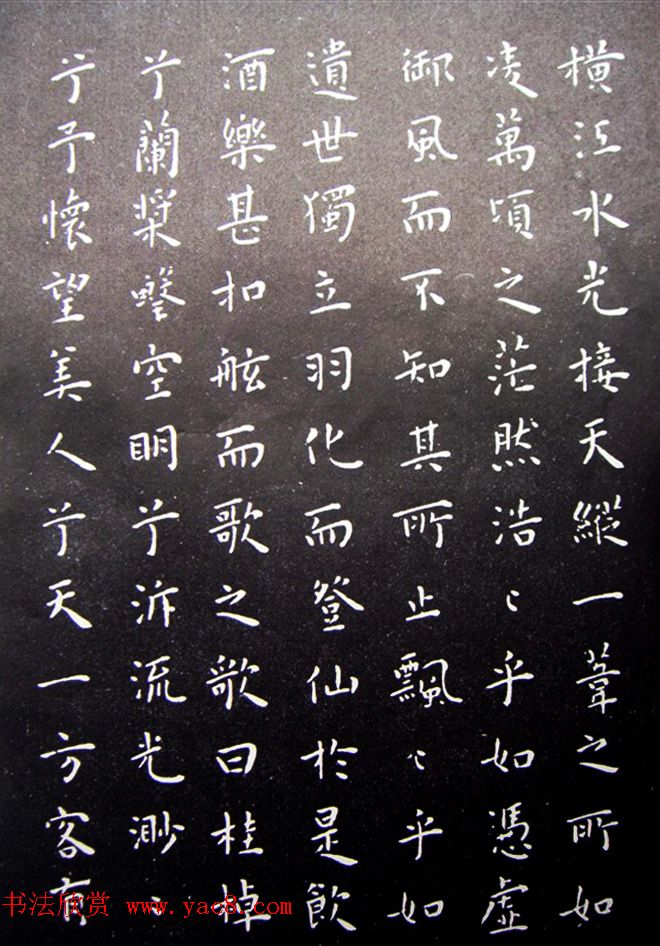 橫江水光接天縱一葦之所如
凌萬頃之茫然浩〻乎如馮虛
御風而不知其所止飄〻乎如
遺世獨立羽化而登仙於是飲
酒樂甚扣舷而歌之歌曰桂棹
兮蘭槳擊空明兮泝流光渺〻
兮予懷望美人兮天一方客有
书法欣赏 www.yac8.com